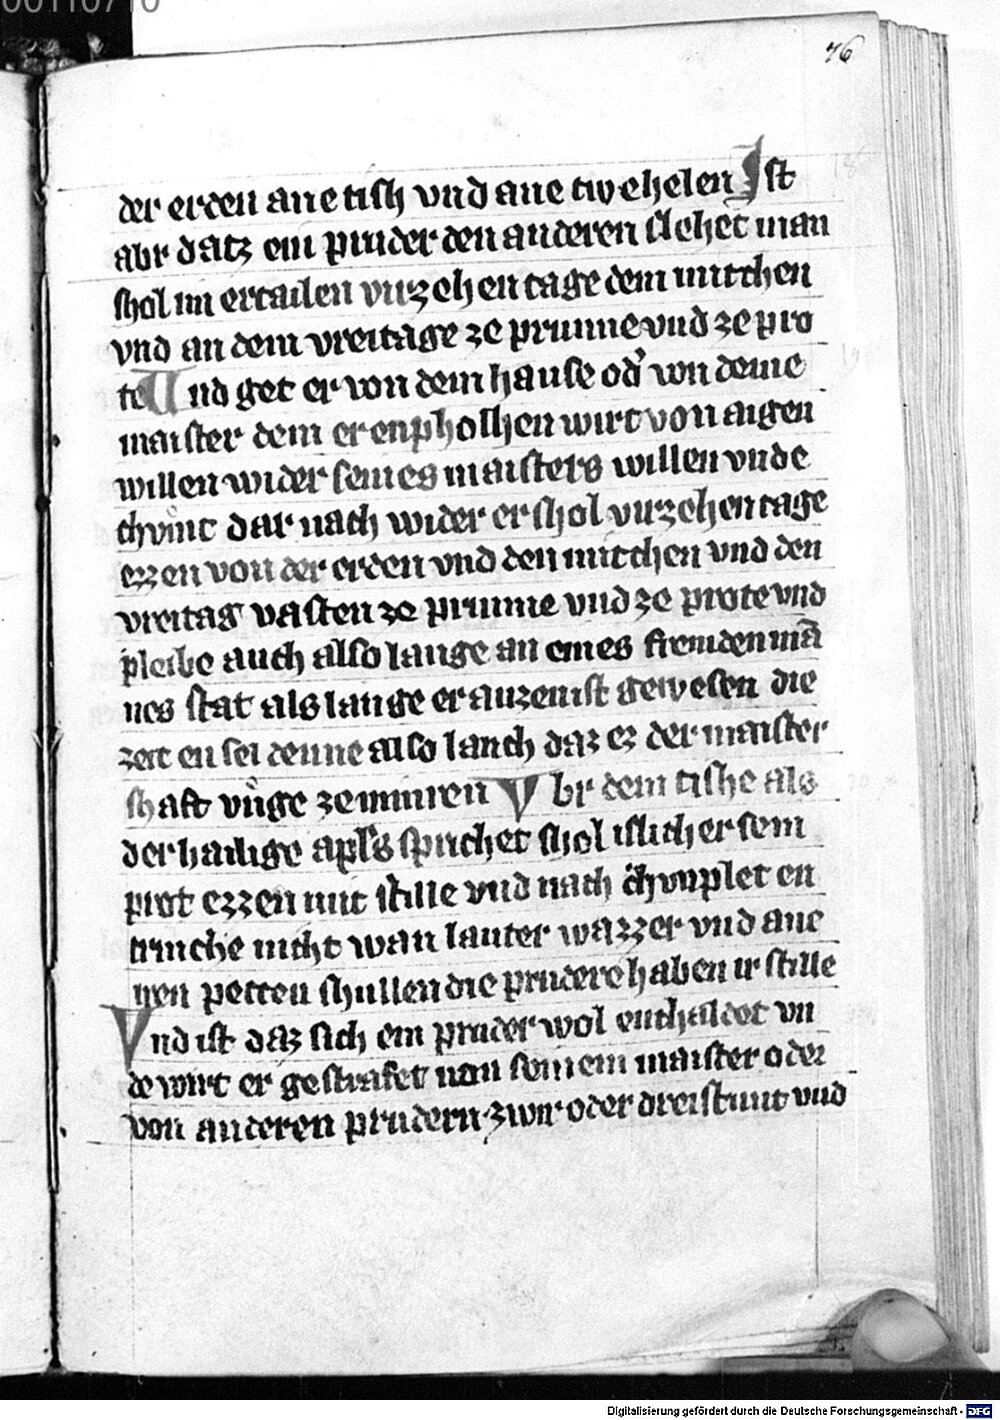 00110710
76
der erden ane tish vnd ane twehelen Ist
abr datz ein pruder den anderen slehet man
shol im ertailen virzehen tage dem mitchen
vnd an dem vreitage ze prunne vnd ze pro
te Vnd get er von dem hause od' von deme
maister dem er enpholhen wirt von aigen
willen wider seines maisters willen vnde
chvͦmt dar nach wider er shol virzehen tage
ezzen von der erden vnd den mitchen vnd den
vreitag vasten ze prunne vnd ze prote vnd
pleibe auch also lange an eines fremden mā
nes stat als lange er auzen ist gewesen die
zeit en sei denne also lanch daz ez der maister
shaft vuͦge ze minren Vbr dem tishe als
der hailige apl's sprichet shol islicher sein
prot ezzen mit stille vnd nach chvnplet en
trinche nicht wan lauter wazzer vnd ane
iren petten shullen die prudere haben ir stille
Vnd ist daz sich ein pruder wol enthaldet vn
de wirt er gestrafet uon seinem maister oder
von anderen prudern zwir oder dreistunt vnd
Digitalisierung gefördert durch die Deutsche Forschungsgemeinschaft - DFG